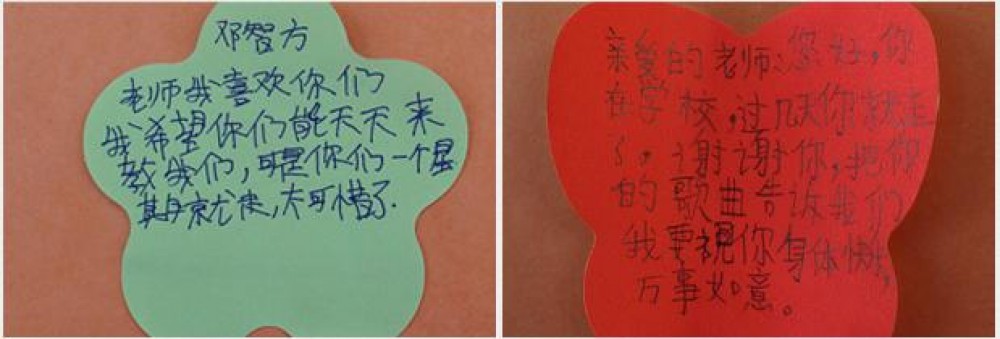 邓智方
老师我喜欢你们
我希望你们能天天来
教我们，可是你们一个星
期就走，太可惜了.
亲爱的老师：您好，你
在学校，过几天你就走
了。谢谢你，把你
的歌曲告诉我们
我要祝你身体快乐，
万事如意。